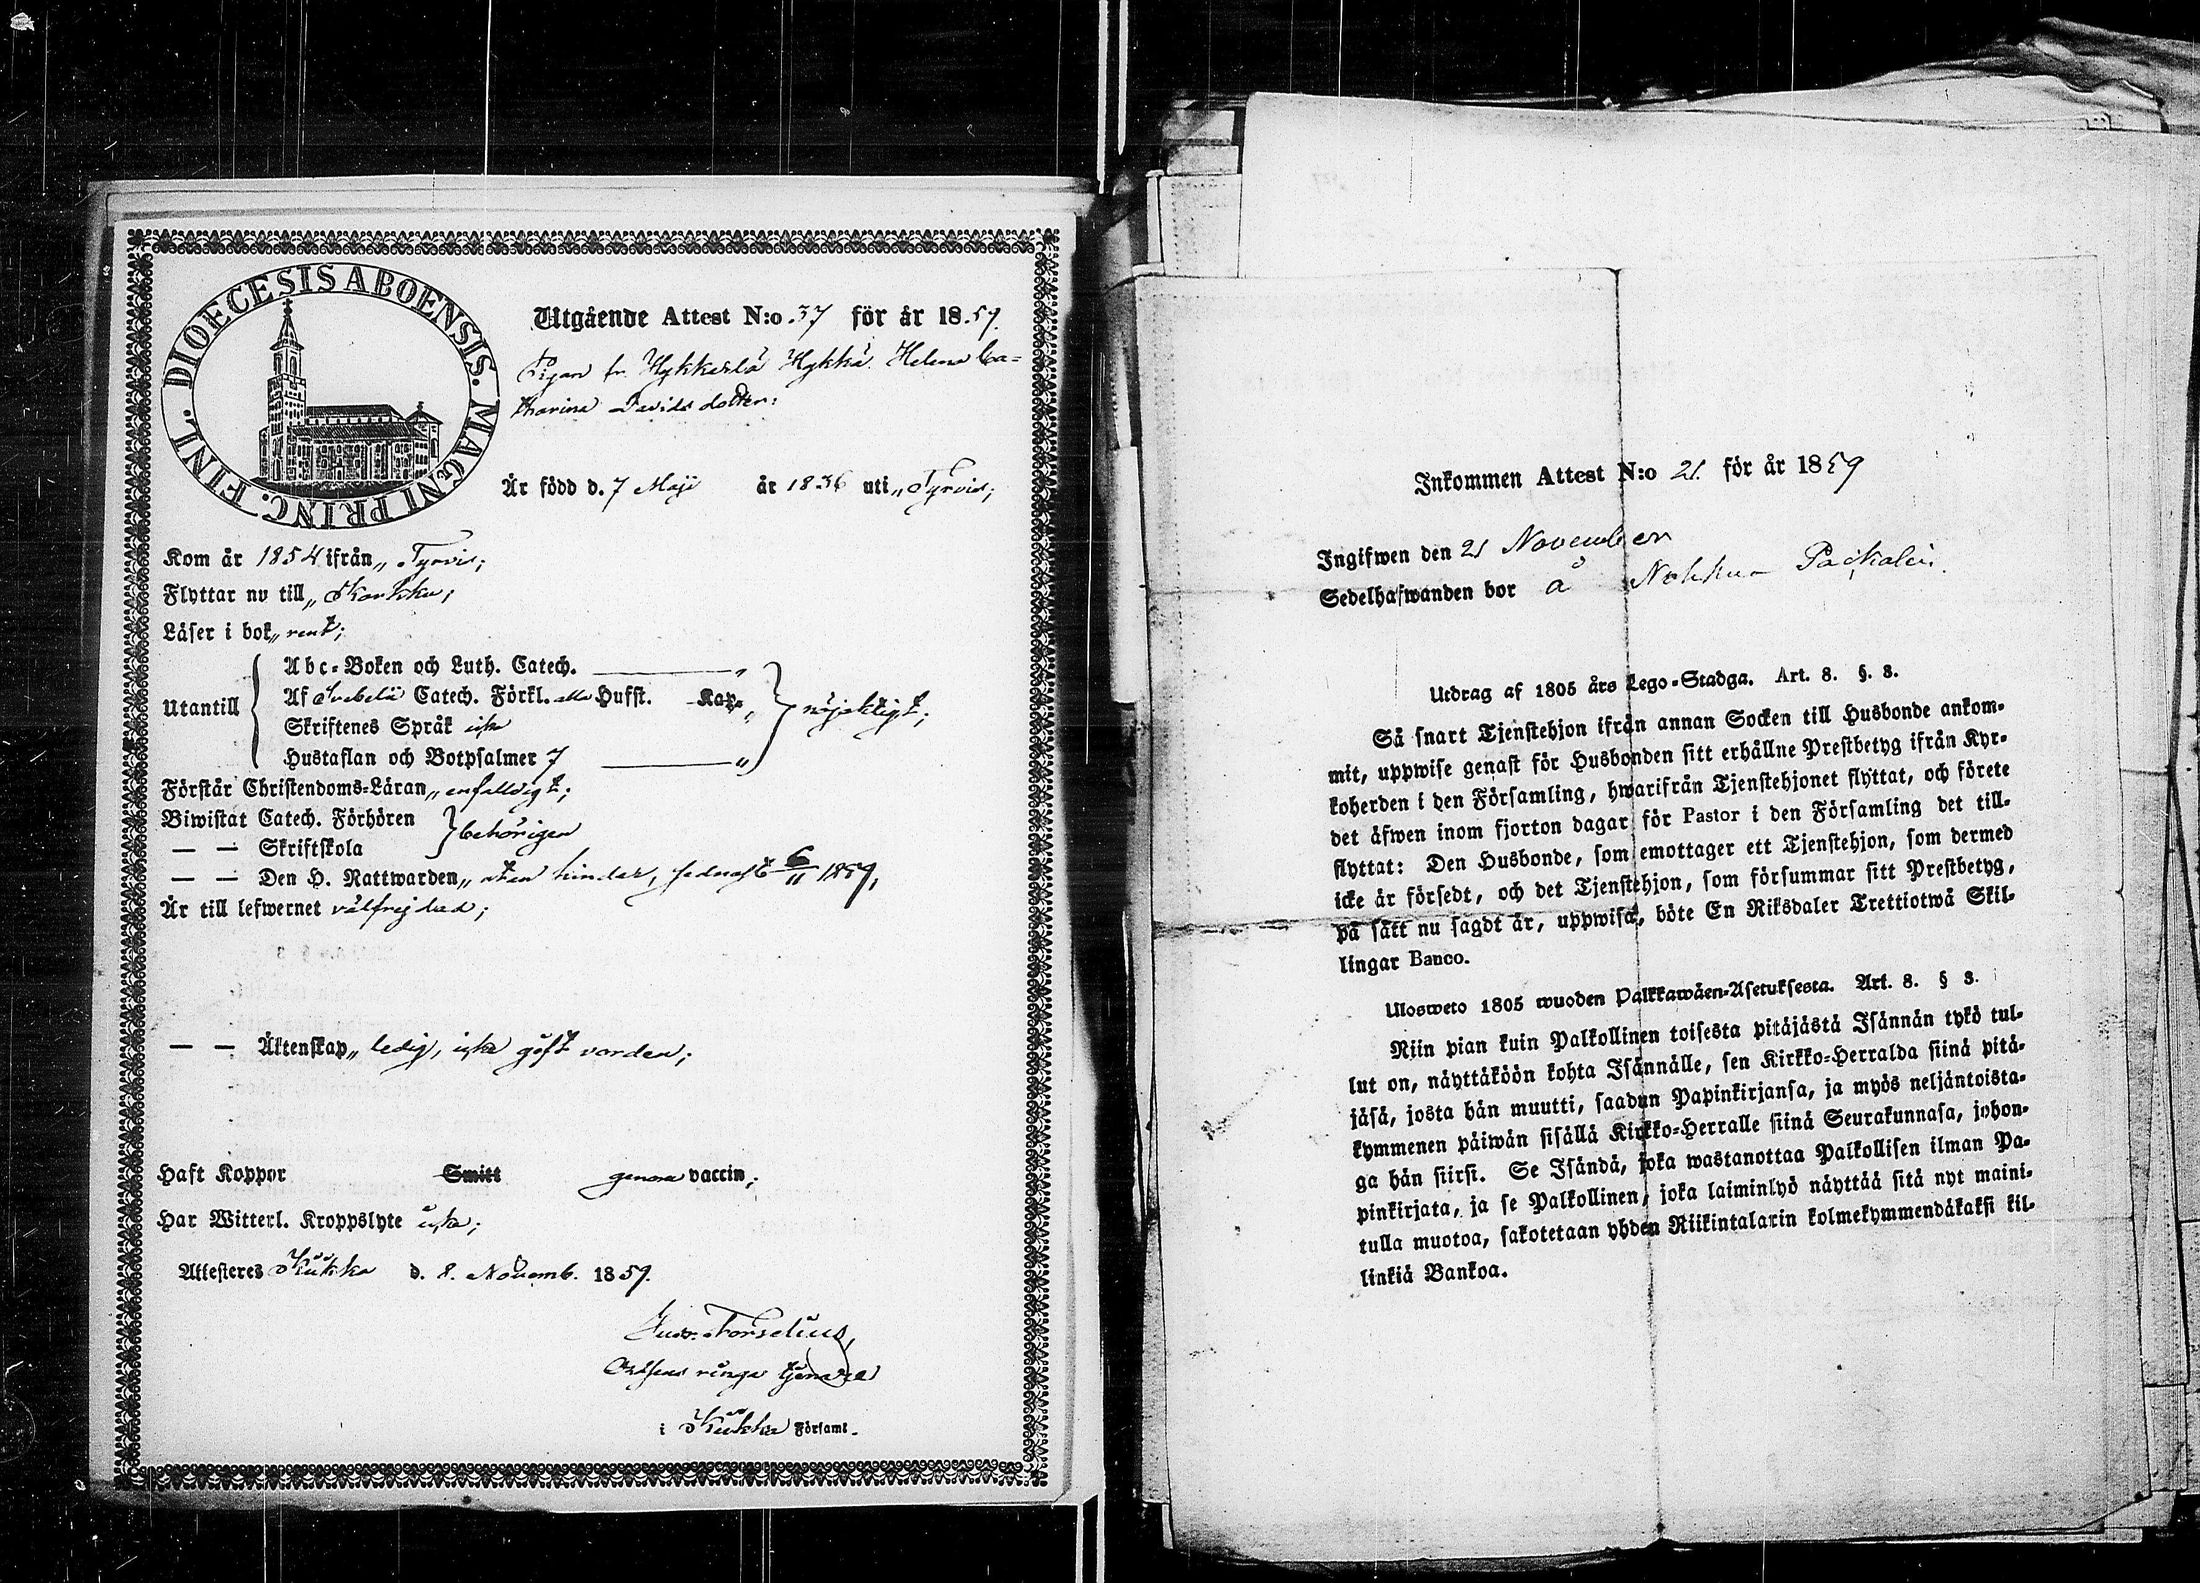 DIOECESIS ABOENSIS. MAGNI PRINC. FINL.
Utgående Attest N:o 37 för år 1859.
Pigan fr. Hykkeslä Hykkä Helena Ca=
tharina Davids dotter;
Är född d. 7 Maji år 1836 uti „ Tyrvis;
Kom år 1854 ifrån „ Tyrvis;
Flyttar nu till „ Karkku;
Läser i bok „ rent;
Utantill
Abc-Boken och Luth. Catech. „
Af Svebelii Catech. Förkl. Hufst. Kap. „
Skriftenes Språk icke
Hustaflan och Botpsalmer 7 „
nöjaktigt;
Förstår Christendoms-Läran „ enfaldigt;
Biwistat Catech. Förhören
— — Skriftskola
behörigen
— — Den H. Nattwarden „ utan hinder, sednast 6/11 1859,
Är till lefwernet välfrejdad;
— — Äktenskap „ ledig, icke gift vorden;
Haft Koppor Smitt genom vaccin;
Har Witterl. Kroppslyte icke;
Attesteras Kiikka d. 8. Novemb. 1859.
Forselius,
ringa tjenare
i Kiikka Församl.
Inkommen Attest N:o 21. för år 1859
Ingifwen den 21 November
Sedelhafwanden bor å
Utdrag af 1805 års Lego-Stadga. Art. 8. §. 3.
Så snart Tjenstehjon ifrån annan Socken till Husbonde ankom-
mit, uppwise genast för Husbonden sitt erhållne Prestbetyg ifrån Kyr-
koherden i den Församling, hwarifrån Tjenstehjonet flyttat, och förete
det äfwen inom fjorton dagar för Pastor i den Församling det till-
flyttat: Den Husbonde, som emottager ett Tjenstehjon, som dermed
icke är försedt, och det Tjenstehjon, som försummar sitt Prestbetyg,
på sätt nu sagdt är, uppwisa, böte En Riksdaler Trettiotwå Skil-
lingar Banco.
Ulosweto 1805 wuoden Palkkawäen-Asetuksesta. Art. 8. § 3.
Niin pian kuin Palkollinen toisesta pitäjästä Isännän tykö tul-
lut on, näyttäköön kohta Isännälle, sen Kirkko-Herralda siinä pitä-
jäsä, josta hän muutti, saadun Papinkirjansa, ja myös neljäntoista-
kymmenen päiwän sisällä Kirkko-Herralle siinä Seurakunnasa, johon-
ga hän siirsi. Se Isändä, joka wastanottaa Palkollisen ilman Pa-
pinkirjata, ja se Palkollinen, joka laiminlyö näyttää sitä nyt maini-
tulla muotoa, sakotetaan yhden Riikintalarin kolmekymmendäkaksi kil-
linkiä Bankoa.